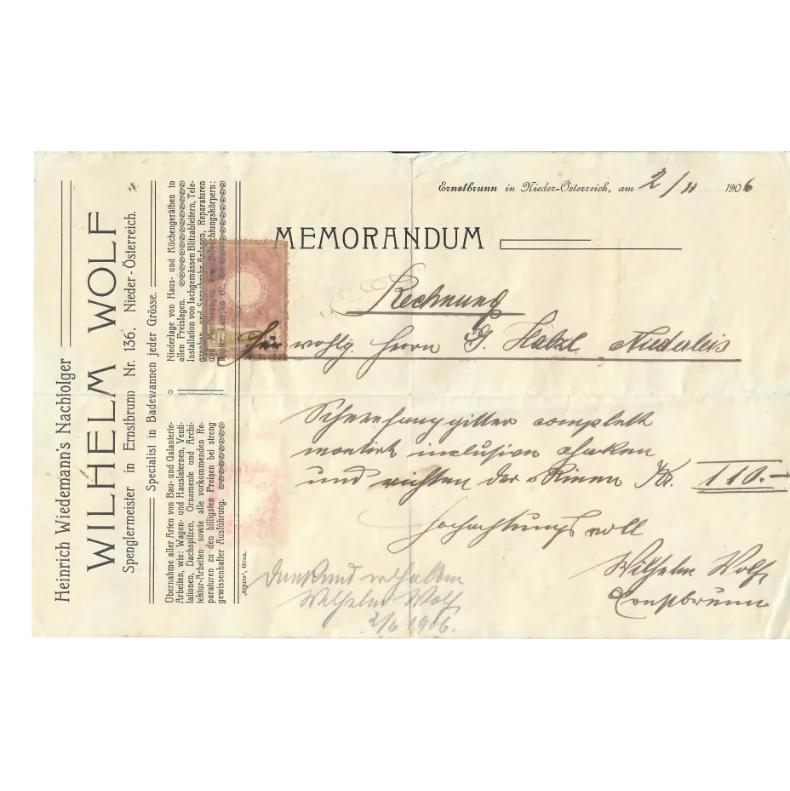 Heinrich Wiedemann's Nachfolger
WILHELM WOLF
Spenglermeister in Ernstbrunn Nr. 136, Nieder-Österreich.
Specialist in Badewannen jeder Grösse.
Übernahme aller Arten von Bau- und Galanterie-
Arbeiten, wie: Wagen- und Hauslaternen, Venti-
lationen, Dachspitzen, Ornamente und Archi-
tektur-Arbeiten sowie alle vorkommenden Re-
paraturen zu den billigsten Preisen bei streng
gewissenhafter Ausführung.
Niederlage von Haus- und Küchengeräthen in
allen Preislagen.
Installation von fachgemässen Blitzableitern, Tele-
graphen- und Sprachrohr-Anlagen, Reparaturen
Ernstbrunn in Nieder-Österreich, am 2/II 1906
MEMORANDUM
Rechnung
Für wohlg. Herrn G. Niederleis
complett
montirt inclusive
und richten der Rinnen Kr. 110.-
Hochachtungsvoll
Wilhelm Wolf
Ernstbrunn
Dankend erhalten
Wilhelm Wolf
2/6 1906.